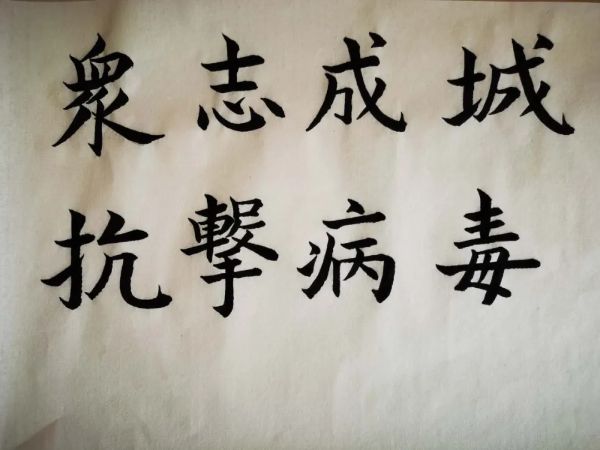 眾志成城
抗擊病毒